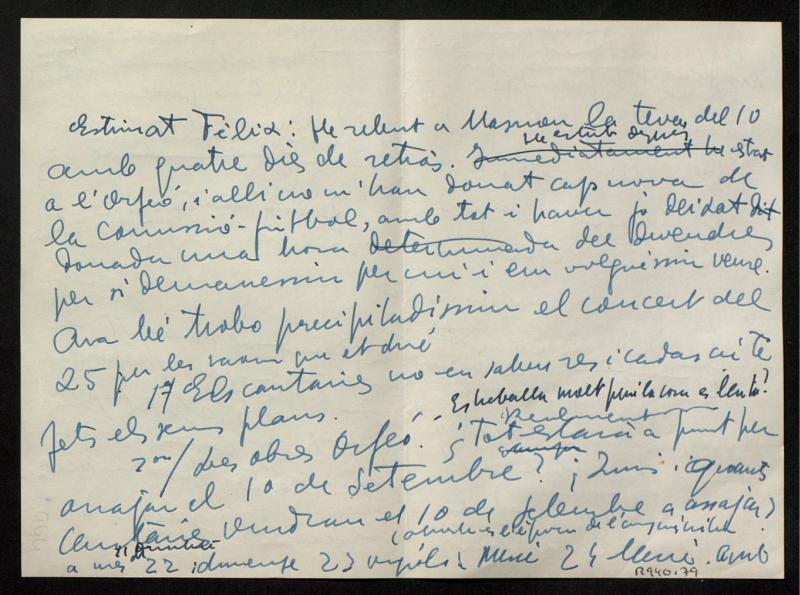 Estimat Fèlix: He rebut a Masnou la teva del 10
He estat després
amb quatre dies de retràs. Immediatament he estat
a l'Orfeó, i allí no m'han donat cap nova de
la comissió-fútbol, amb tot i haver jo deixat dit
donada una hora determinada del divendres
per si demanessin per mi i em volguessin veure.
Ara bé trobo precipitadíssim el concert del
25 per les raons que et diré
1ª Els cantaires no en saben res i cadascú té
fets els seus plans.
Es treballa molt però la cosa és lenta?
Realment
2on/ Les obres Orfeó. ¿Tot estarà a punt per
assajar el 10 de Setembre? ¡Quins i quants
cantaires vendran el 10 de setembre a assajar?
a més 22 diumenge 23 vigília Mercè 24 Mercè. amb
R940.79